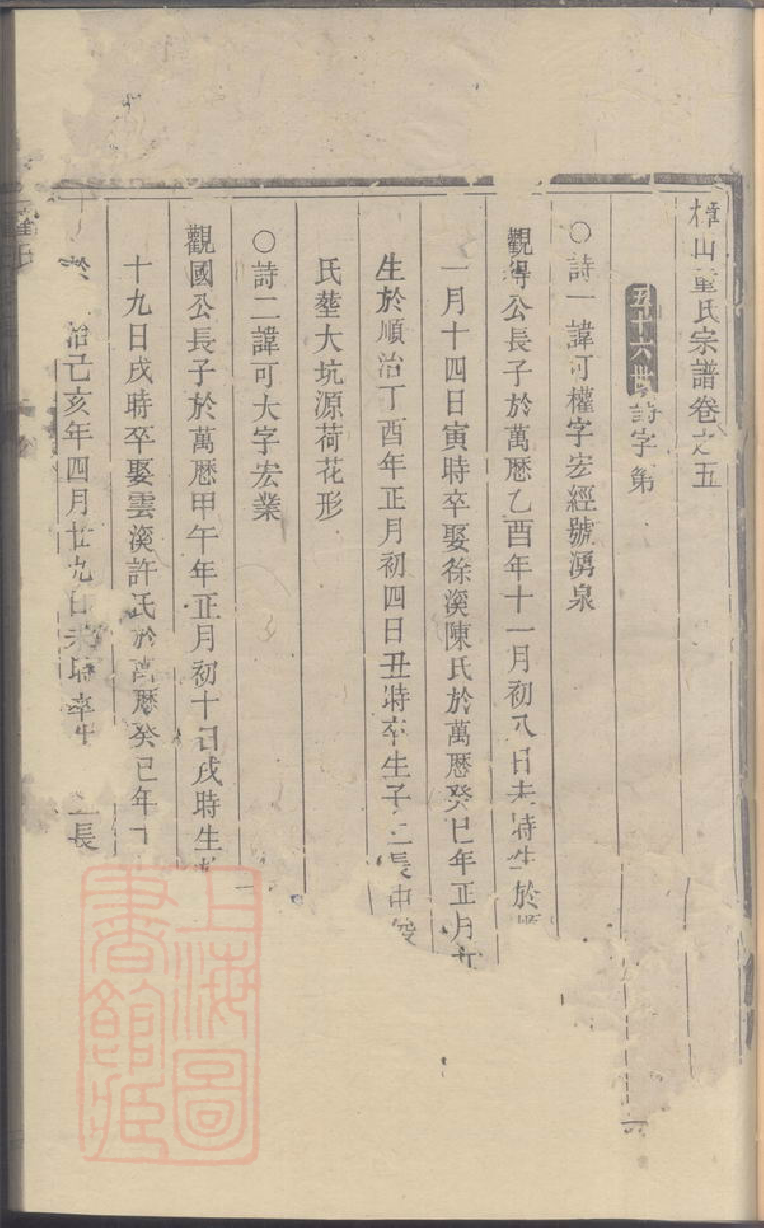 樟山董氏宗譜卷之五
五十六世詩字第
〇詩一諱可權字宏經號湧泉
觀得公長子於萬曆乙酉年十一月初八日未時生於順
一月十四日寅時卒娶徐溪陳氏於萬曆癸巳年正月
生於順治丁酉年正月初四日丑時卒生子二長
氏塟大坑源荷花形
〇詩二諱可大字宏業
觀國公長子於萬曆甲午年正月初十日戌時生
十九日戌時卒娶雲溪許氏於萬曆癸巳年
於 治己亥年四月廿九日未時卒 長
上海圖書館藏